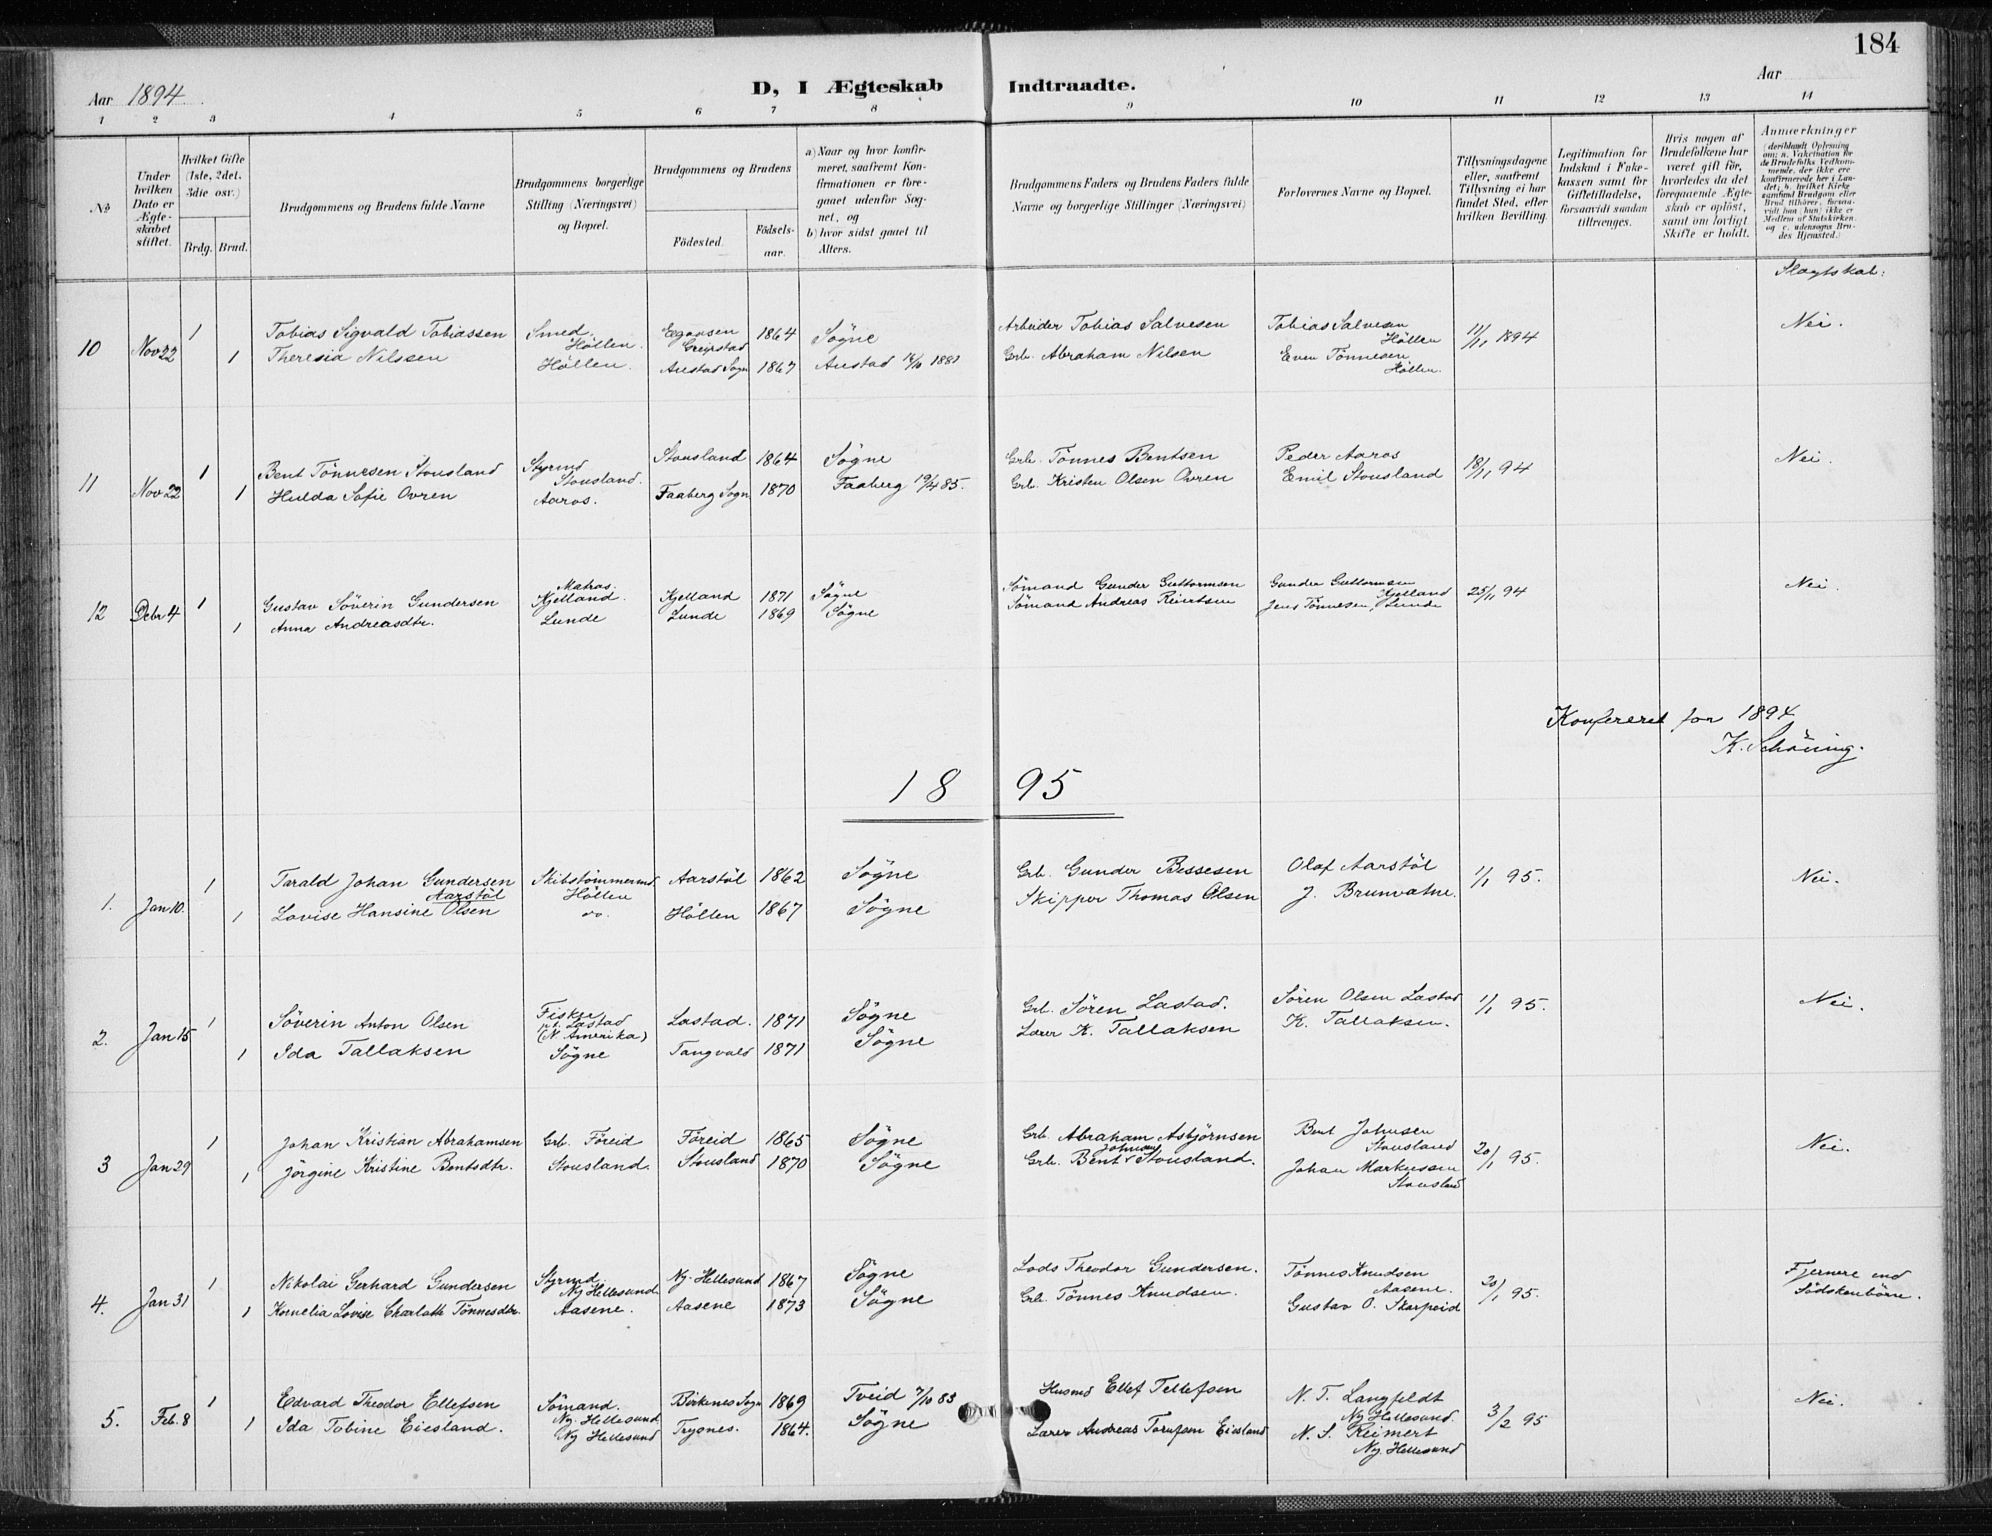 184
Aar 1894
D, I Ægteskab Indtraadte.
Aar
1 2 3 4 5 6 7 8 9 10 11 12 13 14
No.
Under hvilken Dato er Ægteskabet stiftet.
Hvilket Gifte (1ste, 2det, 3die osv.)
Brdg. Brud.
Brudgommens og Brudens fulde Navne
Brudgommens borgerlige Stilling (Næringsvei) og Bopæl.
Brudgommens og Brudens
Fødested.
Fødselsaar.
a) Naar og hvor konfirmeret, saafremt Konfirmationen er foregaaet udenfor Sognet, og
b) hvor sidst gaaet til Alters.
Brudgommens Faders og Brudens Faders fulde Navne og borgerlige Stillinger (Næringsvei)
Forlovernes Navne og Bopæl.
Tillysningsdagene eller, saafremt Tillysning ei har fundet Sted, efter hvilken Bevilling.
Legitimation for Indskud i Enkekassen samt for Giftetilladelse, forsaavidt saadan tiltrænges.
Hvis nogen af Brudefolkene har været gift før, hvorledes da det foregaaende Ægteskab er opløst, samt om lovligt Skifte er holdt.
Anmærkninger
(deriblandt Oplysning om: a. Vakcination for de Brudefolks Vedkommende, der ikke ere konfirmerede her i Landet; b. hvilket Kirkesamfund Brudgom eller Brud tilhører, forsaavidt han (hun) ikke er Medlem af Statskirken, og c. udensogns Brudes Hjemsted.)
Slagtskab:
10 Nov 22 1 Tobias Sigvald Tobiassen Smed. Höllen. Greipstad 1864 Søgne Arbeider Tobias Salvesen Tobias Salvesen Höllen 11/11 1894 Nei.
1 Theresia Nilssen Höllen. Austad Sogn 1867 Austad Grb. Abraham Nilsen Even Tönnesen Höllen.
11 Nov 22 1 Bent Tönnesen Stousland Styrmd Stousland. Stousland 1864 Søgne Grb. Tönnes Bentsen Peder Aaros 18/11 94 Nei.
1 Hulda Sofie Ovren Aaros. Faaberg Sogn 1870 Faaberg 19/4 85. Grb. Kristen Olsen Ovren Emil Stousland
12 Debr 4 1 Gustav Söverin Gundersen Matros. Kjelland. Kjelland 1871 Søgne Sömand Gunder Guttormsen Gunder Guttormsen Kjelland 25/11 94 Nei.
1 Anna Andreasdtr. Lunde Lunde 1869 Søgne Sömand Andreas Reiertsen Jens Tönnesen, Lunde
Konfereret for 1894
K. Schöning.
1895
1. Jan 10. 1 Tarald Johan Gundersen Aarstöl Skibstømmermd. Höllen Aarstöl 1862 Søgne Grb. Gunder Bessesen Olaf Aarstöl 1/1 95. Nei.
1 Lovise Hansine Olsen do. Höllen 1867 Søgne Skipper Thomas Olsen J. Brunvatne.
2. Jan 15 1 Söverin Anton Olsen Fisker p.t. Lastad (N. Amerika) Lastad. 1871 Søgne Grb. Sören Lastad. Sören Olsen Lastad 1/1 95. Nei.
1 Ida Tallaksen Søgne Tangvald 1871 Søgne Lærer K. Tallaksen K. Tallaksen.
3 Jan 29 1 Johan Kristian Abrahamsen Grb. Föreid Föreid 1865 Søgne Grb. Abraham Asbjörnsen Bent Johnsen Stousland 20/1 95. Nei.
1 Jörgine Kristine Bentsdtr. Stousland. Stousland 1870 Søgne Grb. Bent Johnsen Stousland. Johan Markussen Stousland
4. Jan 31 1 Nikolai Gerhard Gundersen Styrmd. Ny Hellesund. Ny-Hellesund 1867 Søgne Lods Theodor Gundersen. Tönnes Knudsen Aasene. 20/1 95. Fjernere end Södskenbörn.
1 Kornelia Lovise Charlotte Tönnesdtr. Aasene. Aasene 1873 Søgne Grb. Tönnes Knudsen. Gustav O. Skarpeid
5. Feb. 8 1 Edvard Theodor Ellefsen Sömand. Ny-Hellesund Birkenes Sogn 1869 Tveid 7/10 83 Husmd Ellef Tellefsen N. T. Langfeldt Ny Hellesund. 3/2 95 Nei.
1 Ida Tobine Eiesland. Ny Hellesund Trysnes. 1864. Søgne Lærer Andreas Eiesland N. S. Reimert Ny. Hellesund